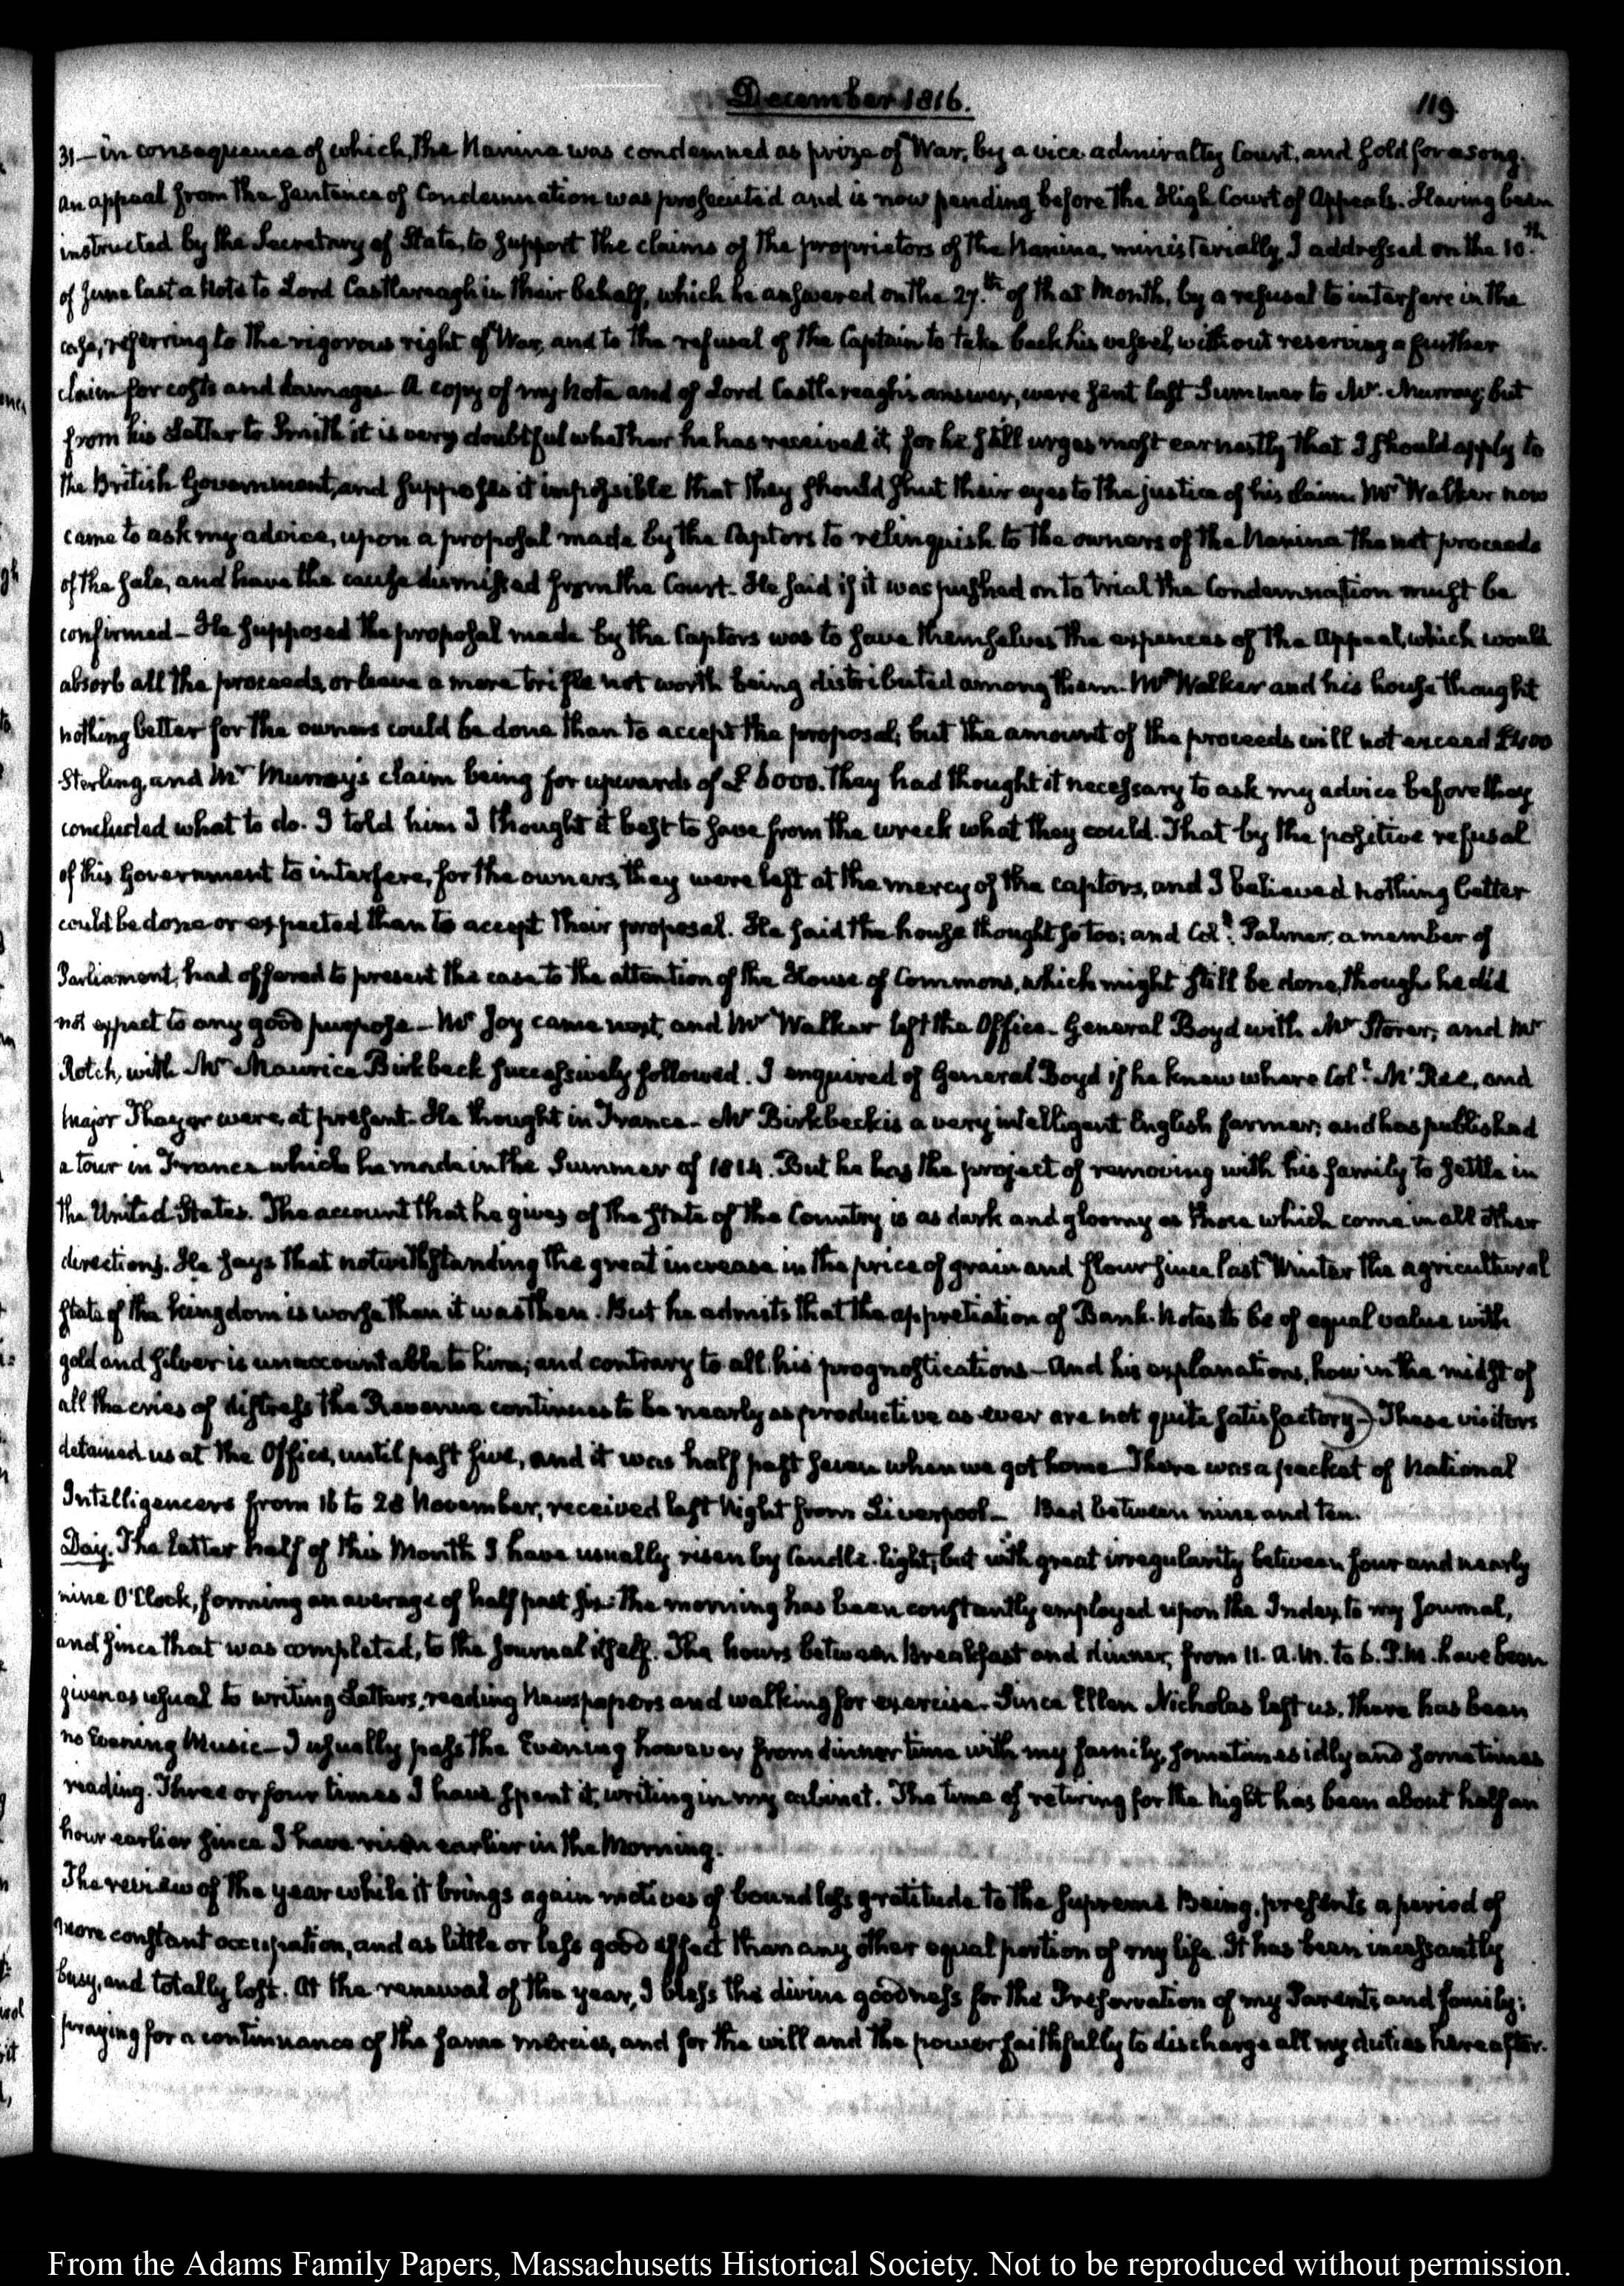 December 1816.
119
31 — in consequence of which, the Nanina was condemned as prize of War, by a vice admiralty Court, and sold for a song.
An appeal from the sentence of Condemnation was prosecuted and is now pending before the High Court of Appeals. Having been
instructed by the Secretary of State, to support the claims of the proprietors of the Nanina, ministerially, I addressed on the 10.th
of June last a Note to Lord Castlereagh in their behalf, which he answered on the 27.th of that Month, by a refusal to interfere in the
case, referring to the rigorous right of War, and to the refusal of the Captain to take back his vessel, without reserving a further
claim for costs and damages. A copy of my Note and of Lord Castlereagh's answer, were sent last Summer to Mr. Murray; but
from his Letter to Smith it is very doubtful whether he has received it, for he still urges most earnestly that I should apply to
the British Government, and supposes it impossible that they should shut their eyes to the justice of his claim. Mr Walker now
came to ask my advice, upon a proposal made by the Captors to relinquish to the owners of the Nanina the net proceeds
of the sale, and have the cause dismissed from the Court. He said if it was pushed on to trial the Condemnation must be
confirmed — He supposed the proposal made by the Captors was to save themselves the expences of the Appeal, which would
absorb all the proceeds, or leave a mere trifle not worth being distributed among them. Mr Walker and his house thought
nothing better for the owners could be done than to accept the proposal; but the amount of the proceeds will not exceed £400
Sterling, and Mr Murray's claim being for upwards of £6000. they had thought it necessary to ask my advice before they
concluded what to do. I told him I thought it best to save from the wreck what they could. That by the positive refusal
of this Government to interfere, for the owners, they were left at the mercy of the captors, and I believed nothing better
could be done or expected than to accept their proposal. He said the house thought so too; and Coll. Palmer, a member of
Parliament, had offered to present the case to the attention of the House of Commons, which might still be done, though he did
not expect to any good purpose — Mr Joy came next, and Mr Walker left the Office. General Boyd with Mr Storer, and Mr
Rotch, with Mr Maurice Birkbeck successively followed. I enquired of General Boyd if he knew where Coll. McRee, and
Major Thayer were, at present. He thought in France. Mr Birkbeck is a very intelligent English farmer; and has published
a tour in France which he made in the Summer of 1814. But he has the project of removing with his family to settle in
the United States. The account that he gives of the state of the Country is as dark and gloomy as those which come in all other
directions. He says that notwithstanding the great increase in the price of grain and flour since last Winter the agricultural
state of the kingdom is worse than it was then. But he admits that the appretiation of Bank-Notes to be of equal value with
gold and silver is unaccountable to him; and contrary to all his prognostications — And his explanations, how in the midst of
all the cries of distress the Revenue continues to be nearly as productive as ever are not quite satisfactory — These visitors
detained us at the Office, until past five, and it was half past seven when we got home. There was a packet of National
Intelligencers from 16 to 28 November, received last Night from Liverpool — Bed between nine and ten.
Day. The latter half of this Month I have usually risen by Candle-light; but with great irregularity between four and nearly
nine O'Clock, forming an average of half past six: the morning has been constantly employed upon the Index to my Journal,
and since that was completed, to the Journal itself. The hours between Breakfast and dinner, from 11. A.M. to 6. P.M. have been
given as usual to writing Letters, reading Newspapers and walking for exercise. Since Ellen Nicholas left us, there has been
no Evening Music — I usually pass the Evening however from dinner time with my family, sometimes idly and sometimes
reading. Three or four times I have spent it, writing in my cabinet. The time of retiring for the Night has been about half an
hour earlier since I have risen earlier in the Morning.
The review of the year while it brings again motives of boundless gratitude to the Supreme Being, presents a period of
more constant occupation, and as little or less good effect than any other equal portion of my life. It has been incessantly
busy, and totally lost. At the renewal of the year, I bless the divine goodness for the Preservation of my Parents and family;
praying for a continuance of the same mercies, and for the will and the power faithfully to discharge all my duties hereafter.
From the Adams Family Papers, Massachusetts Historical Society. Not to be reproduced without permission.